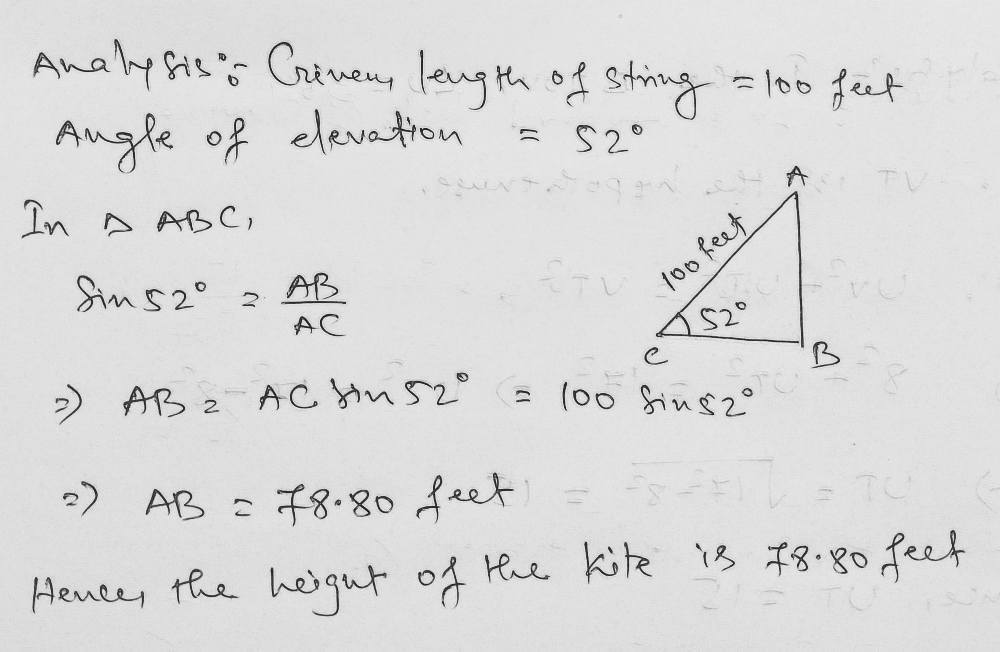 Analysis :- Given, length of string = 100 feet
Angle of elevation = 52°
In △ ABC,
A
100 feet
52°
C
B
Sin 52° = AB/AC
⇒ AB = AC Sin 52° = 100 Sin 52°
⇒ AB = 78.80 feet
Hence, the height of the kite is 78.80 feet